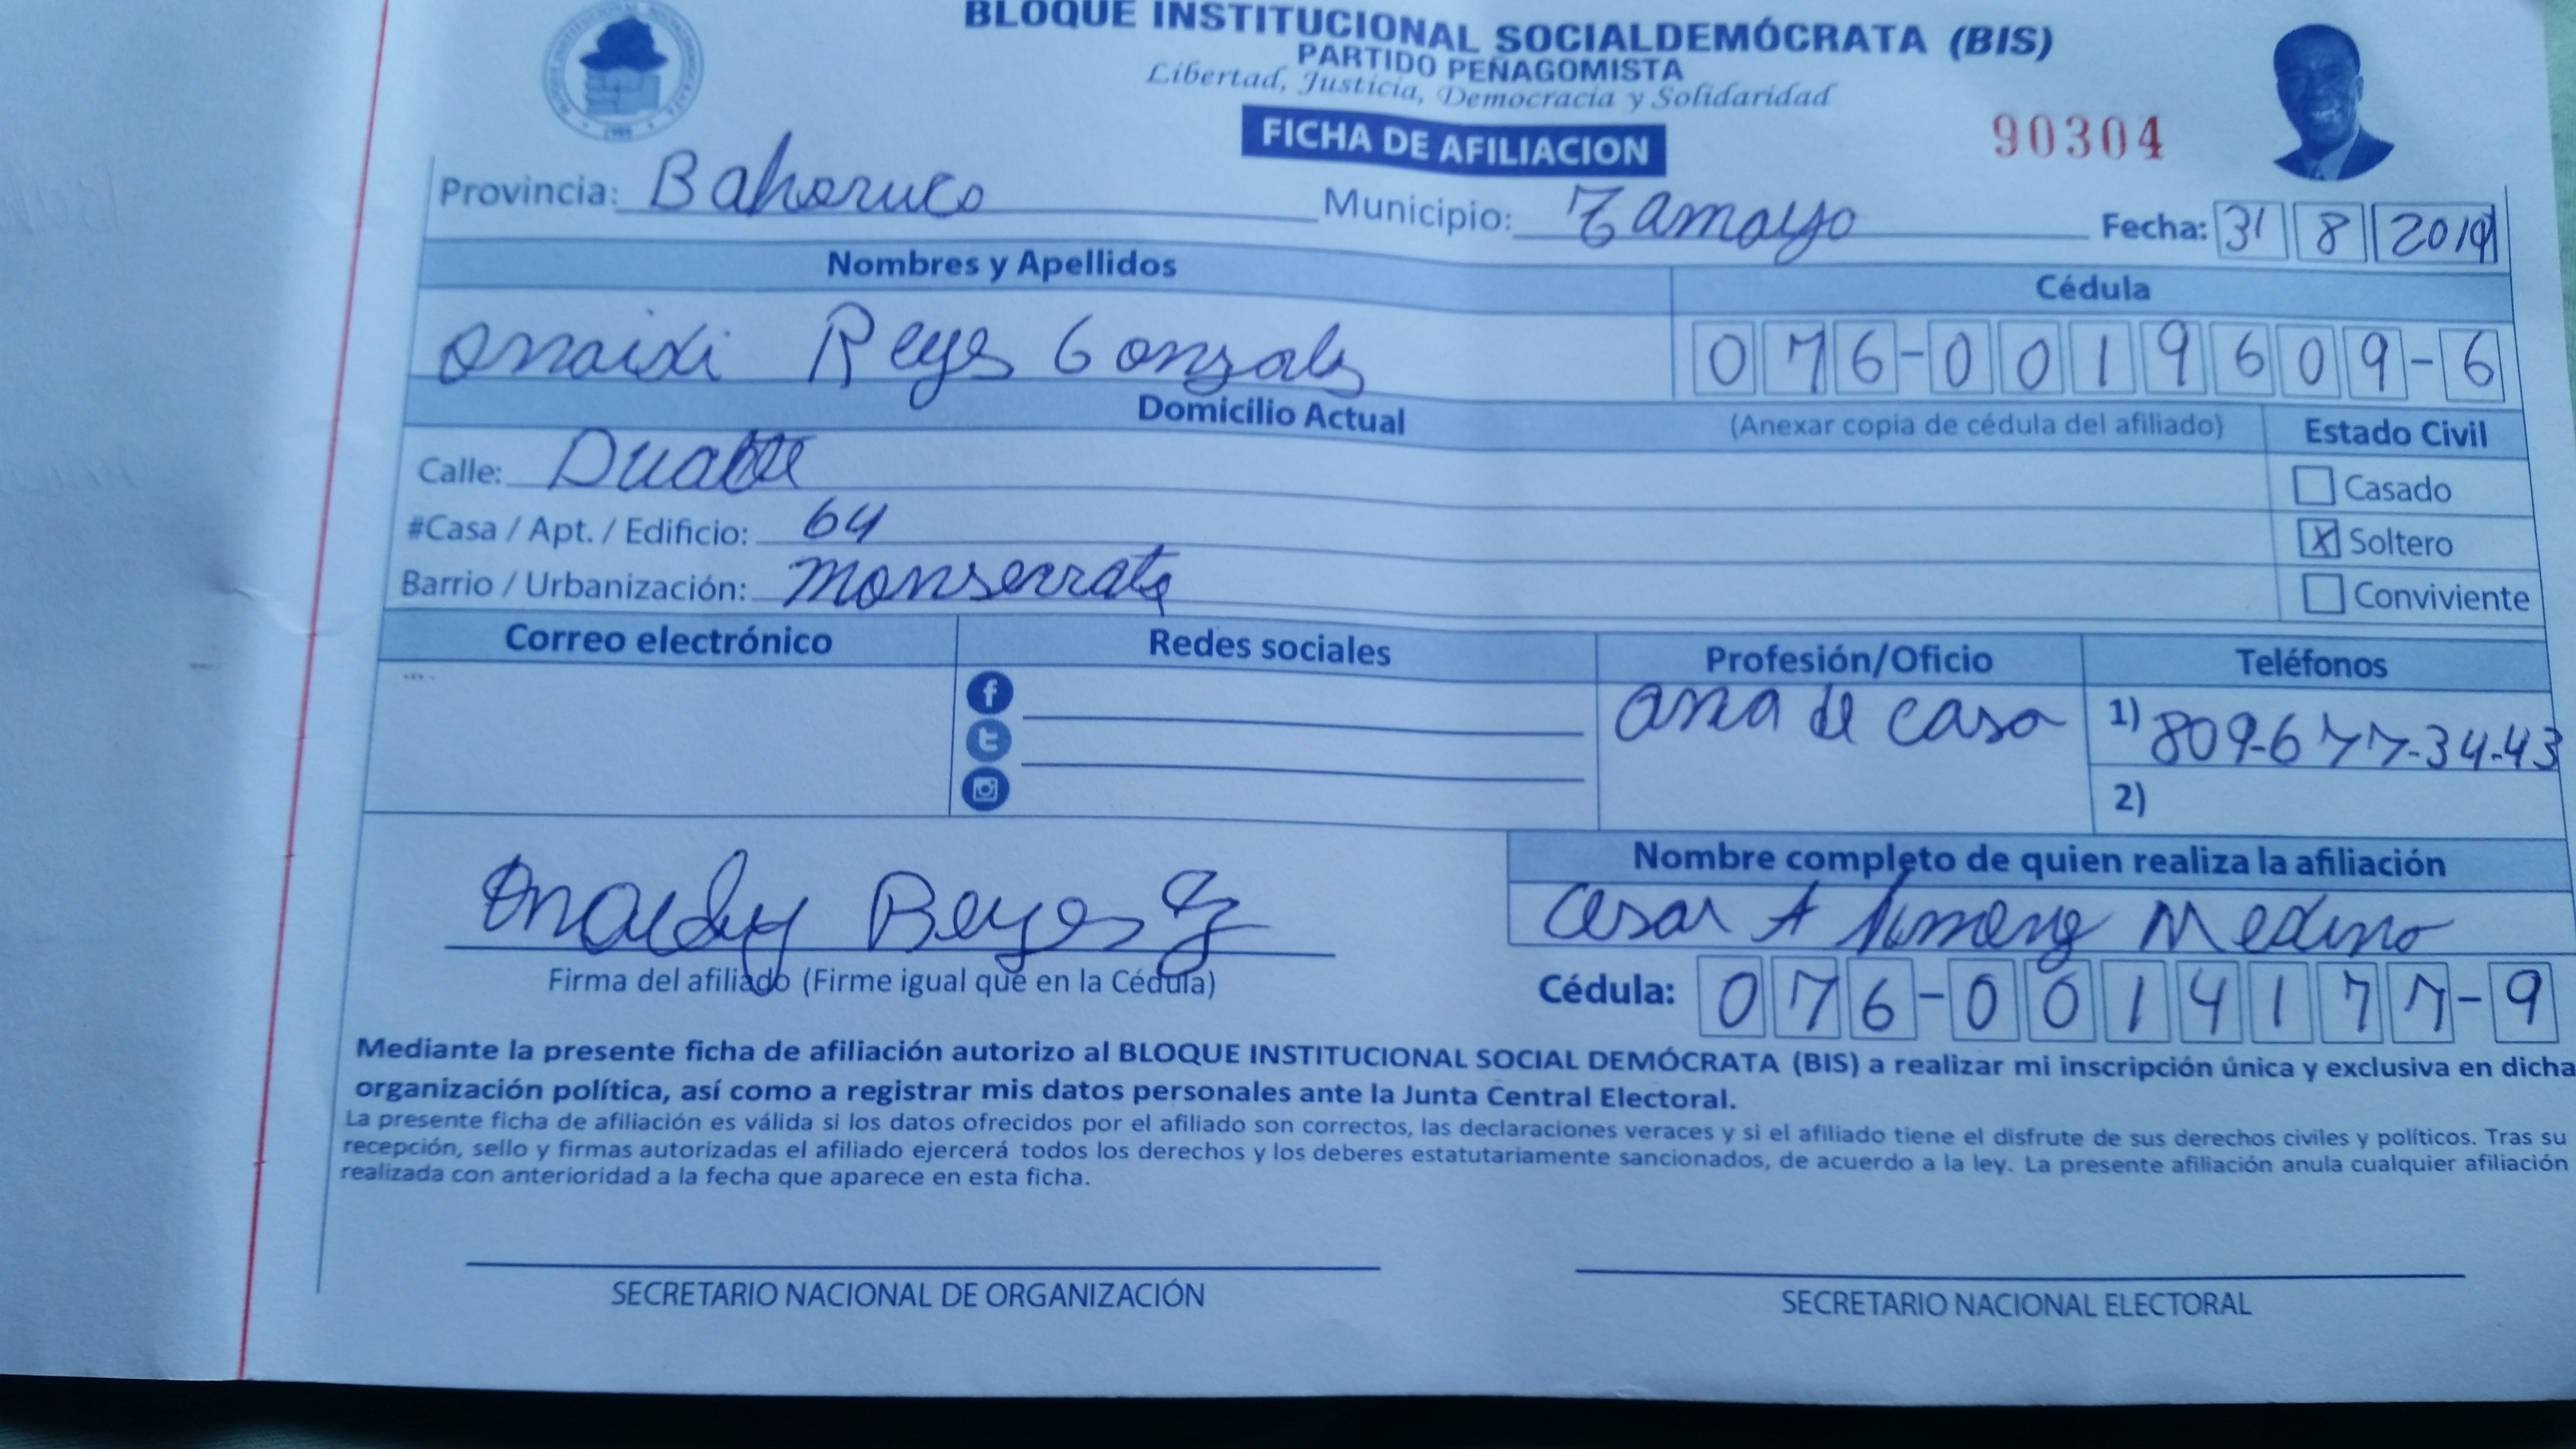 BLOQUE INSTITUCIONAL SOCIALDEMÓCRATA (BIS)
PARTIDO PEÑAGOMISTA
Libertad, Justicia, Democracia y Solidaridad
FICHA DE AFILIACION
90304
Provincia: Bahoruco Municipio: Tamayo Fecha: 31 8 2019
Nombres y Apellidos Cédula
Reyes Gonzales 076-0019609-6
Domicilio Actual (Anexar copia de cédula del afiliado) Estado Civil
Calle: Duarte
Casado
#Casa / Apt. / Edificio: 64
X Soltero
Barrio / Urbanización: Monserrate
Conviviente
Correo electrónico Redes sociales Profesión/Oficio Teléfonos
ama de casa 1) 809-677-34-43
2)
Nombre completo de quien realiza la afiliación
Reyes G
Cesar A Medina
Firma del afiliado (Firme igual que en la Cédula)
Cédula: 076-0014177-9
Mediante la presente ficha de afiliación autorizo al BLOQUE INSTITUCIONAL SOCIAL DEMÓCRATA (BIS) a realizar mi inscripción única y exclusiva en dicha
organización política, así como a registrar mis datos personales ante la Junta Central Electoral.
La presente ficha de afiliación es válida si los datos ofrecidos por el afiliado son correctos, las declaraciones veraces y si el afiliado tiene el disfrute de sus derechos civiles y políticos. Tras su
recepción, sello y firmas autorizadas el afiliado ejercerá todos los derechos y los deberes estatutariamente sancionados, de acuerdo a la ley. La presente afiliación anula cualquier afiliación
realizada con anterioridad a la fecha que aparece en esta ficha.
SECRETARIO NACIONAL DE ORGANIZACIÓN
SECRETARIO NACIONAL ELECTORAL